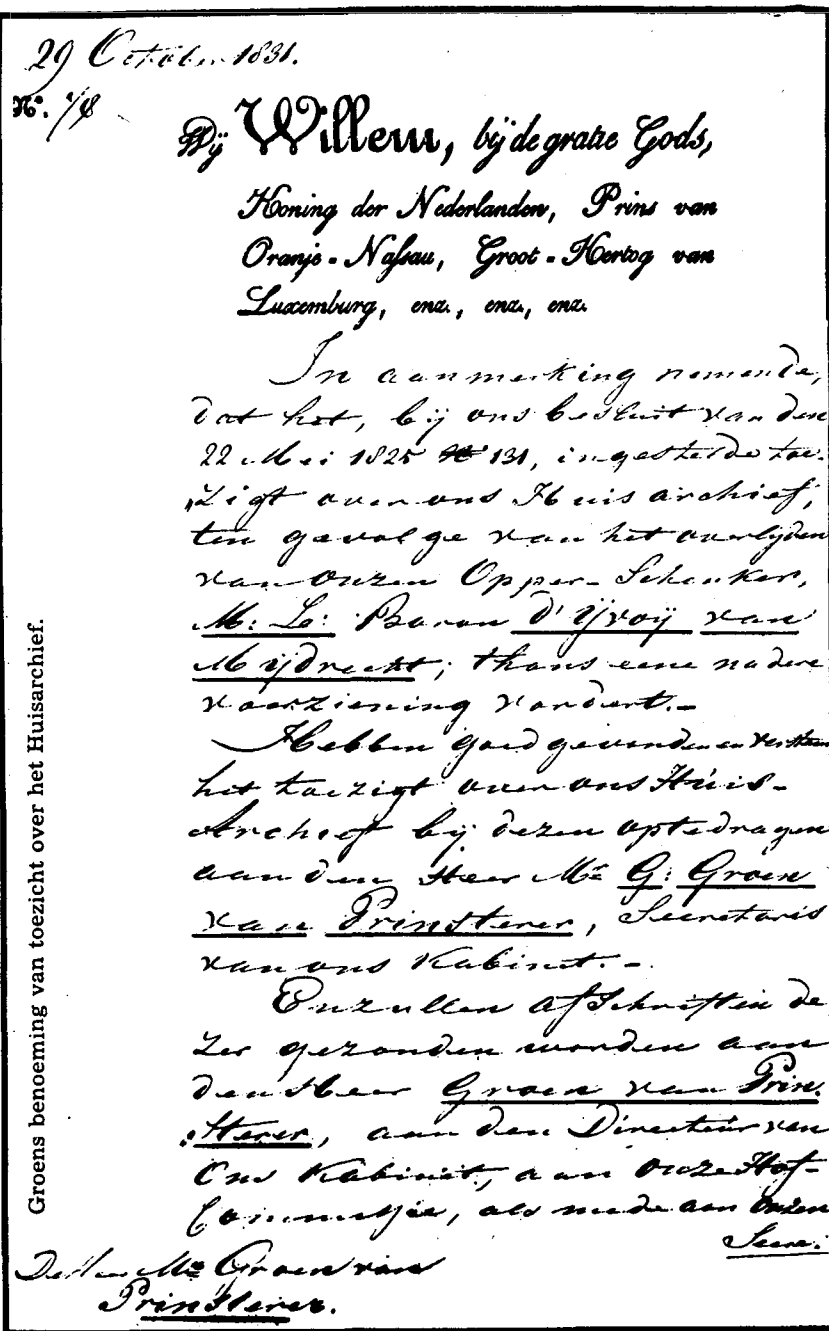 29 October 1831.
No. 1/8
Wij Willem, bij de gratie Gods,
Koning der Nederlanden, Prins van
Oranje-Nassau, Groot-Hertog van
Luxemburg, enz., enz., enz.
In aanmerking nemende,
dat het, bij ons besluit van den
22 Mei 1825 No 131, ingestelde toe-
zigt over ons Huisarchief,
ten gevolge van het overlijden
van onzen Opper-Schenker,
M: L: Baron d'Yvoij van
Mijdrecht, thans eene nadere
voorziening vordert.-
Hebben goedgevonden en verstaan
het toezigt over ons Huis-
Archief bij dezen optedragen
aan den Heer Mr G: Groen
van Prinsterer, Secretaris
van ons Kabinet.-
En zullen afschriften de-
zer gezonden worden aan
den Heer Groen van Prin-
sterer, aan den Directeur van
Ons Kabinet, aan onze Hof-
Commissie, als mede aan onzen
Secre:
De Heer Mr Groen van
Prinsterer.
Groens benoeming van toezicht over het Huisarchief.